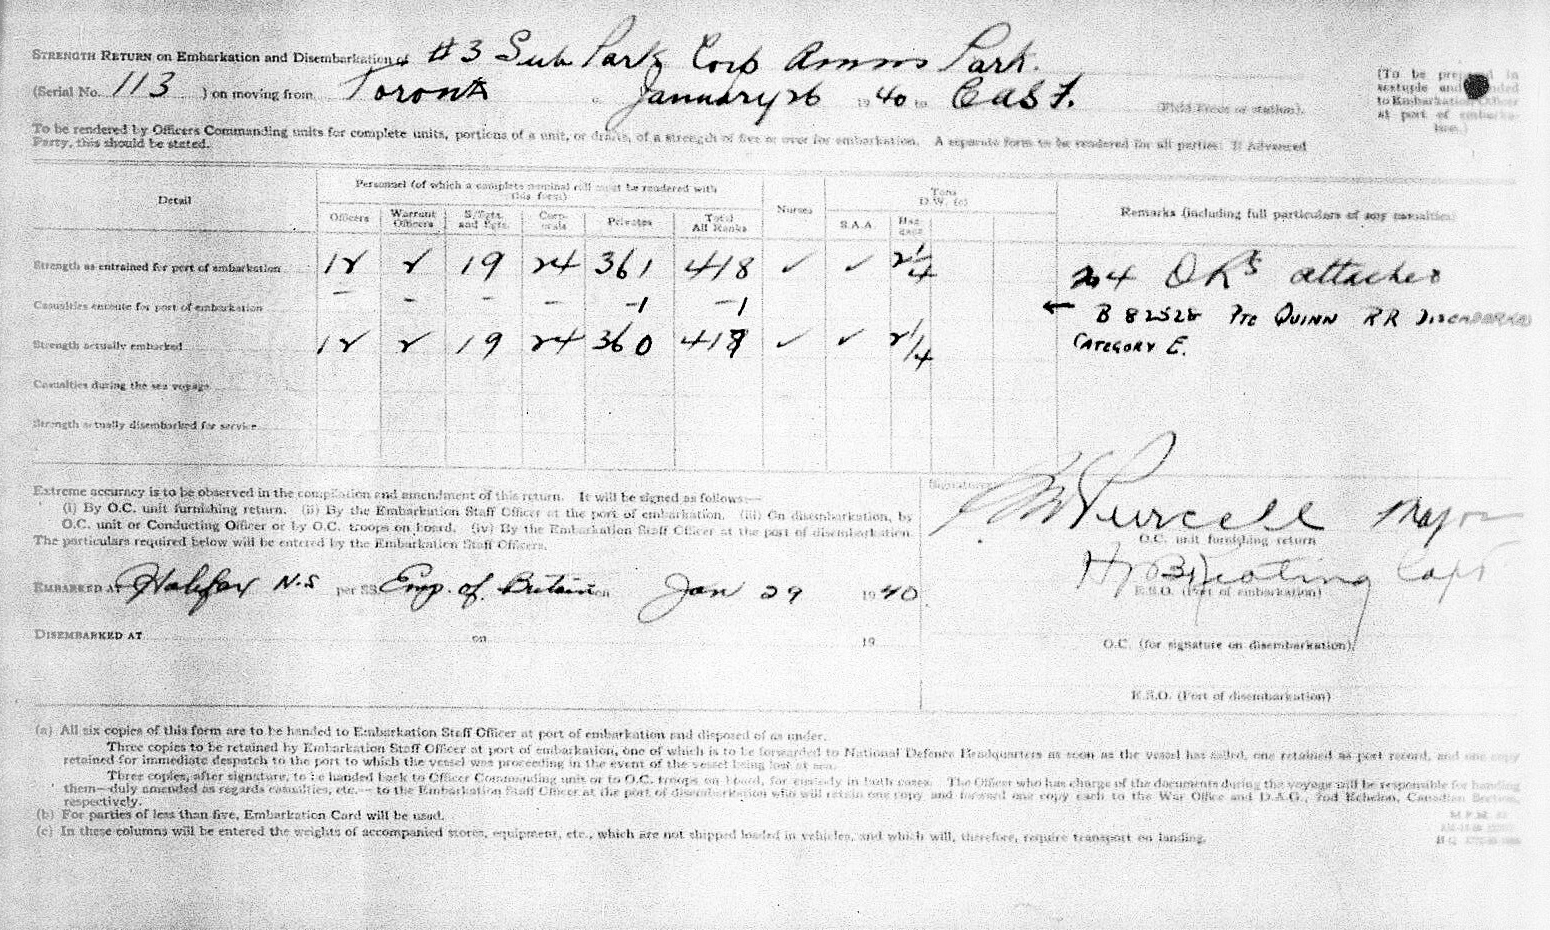 STRENGTH RETURN on Embarkation and Disembarkation of #3 Sub Park Corp Ammn Park.
(Serial No. 113 ) on moving from Toronto January 26 1940 to C.A.S.F. (Field Force or station).
(To be prepared in sextuple and handed to Embarkation Officer at port of embarkation.)
To be rendered by Officers Commanding units for complete units, portions of a unit, or drafts, of a strength of five or over for embarkation. A separate form to be rendered for all parties. If Advanced
Party, this should be stated.
Detail
Personnel (of which a complete nominal roll must be rendered with
this form)
Officers Warrant Officers S/Sgts. and Sgts. Corporals Privates Total All Ranks
Nurses
Tons
D.W. (c)
S.A.A. Baggage
Remarks (including full particulars of any casualties)
Strength as entrained for port of embarkation 12 2 19 24 361 418 ✓ ✓ 2 1/4 24 ORs attached
Casualties enroute for port of embarkation – – – – –1 –1 ← B 82528 Pte QUINN RR DISEMBARKED
Strength actually embarked 12 2 19 24 360 417 ✓ ✓ 2 1/4 CATEGORY E.
Casualties during the sea voyage
Strength actually disembarked for service
Extreme accuracy is to be observed in the compilation and amendment of this return. It will be signed as follows:—
(i) By O.C. unit furnishing return. (ii) By the Embarkation Staff Officer at the port of embarkation. (iii) On disembarkation, by
O.C. unit or Conducting Officer or by O.C. troops on board. (iv) By the Embarkation Staff Officer at the port of disembarkation.
The particulars required below will be entered by the Embarkation Staff Officers.
Signatures
Purcell Major
O.C. unit furnishing return
EMBARKED AT Halifax N.S per SS. Emp. of Britain on Jan 29 1940
Keating Capt
E.S.O. (Port of embarkation)
DISEMBARKED AT on 19
O.C. (for signature on disembarkation)
E.S.O. (Port of disembarkation)
(a) All six copies of this form are to be handed to Embarkation Staff Officer at port of embarkation and disposed of as under.
Three copies to be retained by Embarkation Staff Officer at port of embarkation, one of which is to be forwarded to National Defence Headquarters as soon as the vessel has sailed, one retained as port record, and one copy
retained for immediate despatch to the port to which the vessel was proceeding in the event of the vessel being lost at sea.
Three copies, after signature, to be handed back to Officer Commanding unit or to O.C. troops on board, for custody in both cases. The Officer who has charge of the documents during the voyage will be responsible for handing
them—duly amended as regards casualties, etc.—to the Embarkation Staff Officer at the port of disembarkation who will retain one copy and forward one copy each to the War Office and D.A.G., 2nd Echelon, Canadian Section,
respectively.
(b) For parties of less than five, Embarkation Card will be used.
(c) In these columns will be entered the weights of accompanied stores, equipment, etc., which are not shipped loaded in vehicles, and which will, therefore, require transport on landing.